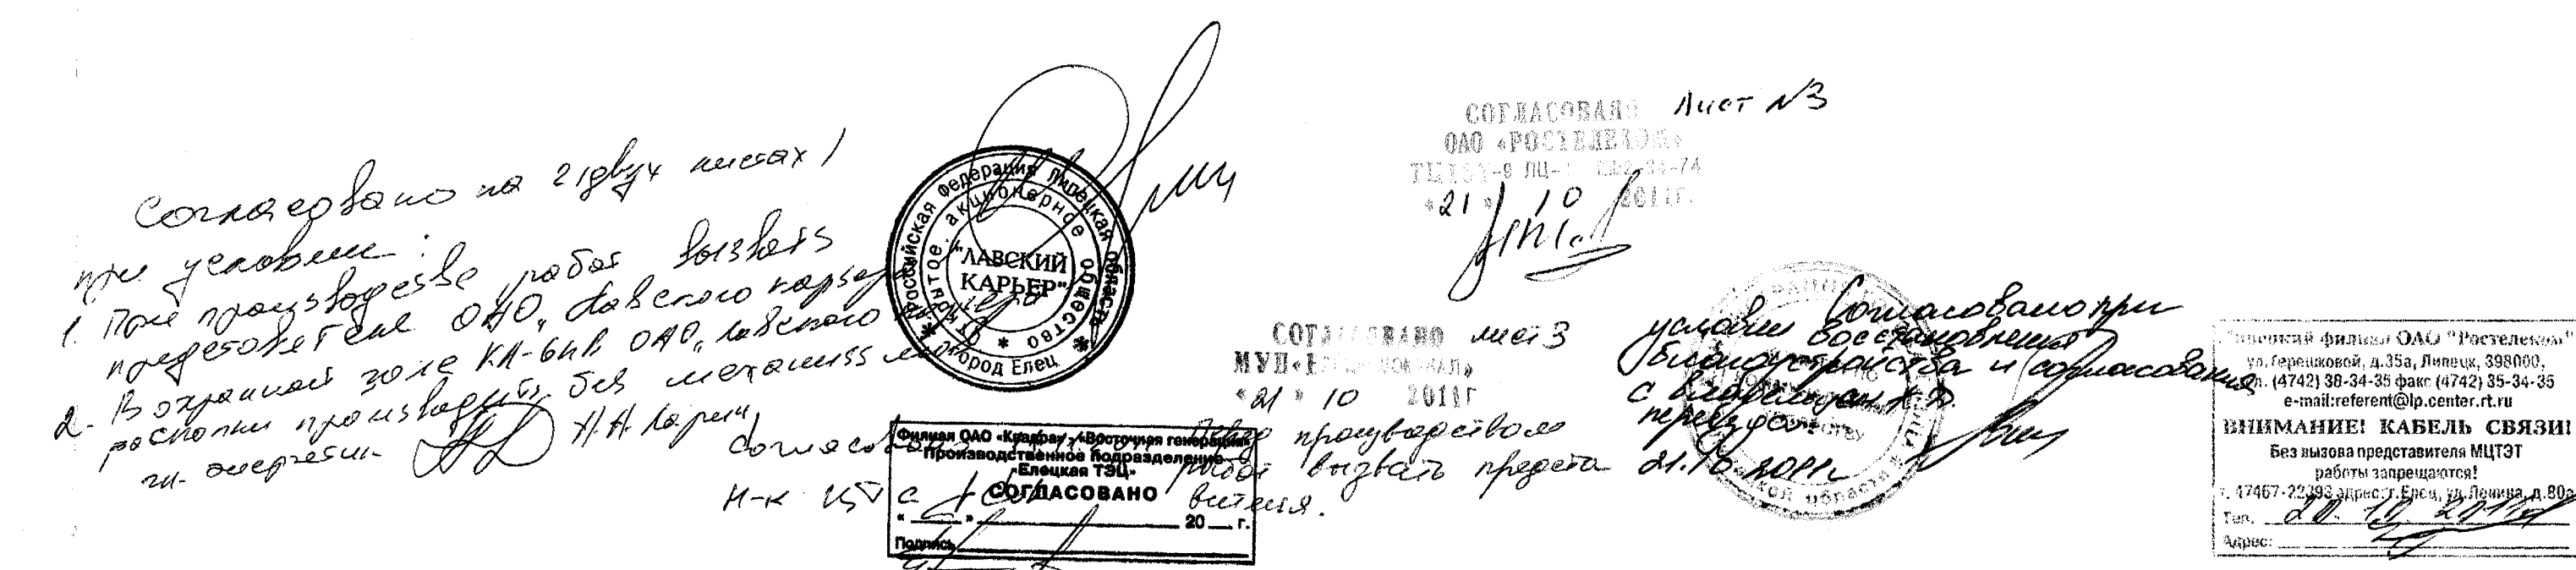 Согласовано на 2 (двух листах)
при условии:
1. При производстве работ вызвать
представителя ОАО „Лавского карьера
2. В охранной зоне КЛ-6кВ ОАО „Лавского карьера
раскопки производить без механизмов
гл. энергетик Н.Н.
Российская Федерация Липецкая область
город Елец
Открытое акционерное общество
"ЛАВСКИЙ
КАРЬЕР"
Филиал ОАО «Квадра» - «Восточная генерация»
Производственное подразделение
«Елецкая ТЭЦ»
СОГЛАСОВАНО
« » 20 г.
Подпись
Согласовано
Н-к
СОГЛАСОВАНО Лист №3
ОАО «РОСТЕЛЕКОМ»
«21» 10 2011г.
СОГЛАСОВАНО лист 3
МУП
«21» 10 2011г
Перед производством
работ вызвать предста
вителя.
Согласовано при
условии восстановления
благоустройства и согласования
с владельцем
21.10.2011г.
филиал ОАО "Ростелеком"
ул.Терешковой, д.35а, Липецк, 398000,
(4742) 38-34-35 факс (4742) 35-34-35
e-mail:referent@lp.center.rt.ru
ВНИМАНИЕ! КАБЕЛЬ СВЯЗИ!
Без вызова представителя МЦТЭТ
работы запрещаются!
адрес: г.Елец, ул.Ленина, д.80а
Тел. 20.10.2011г
Адрес: